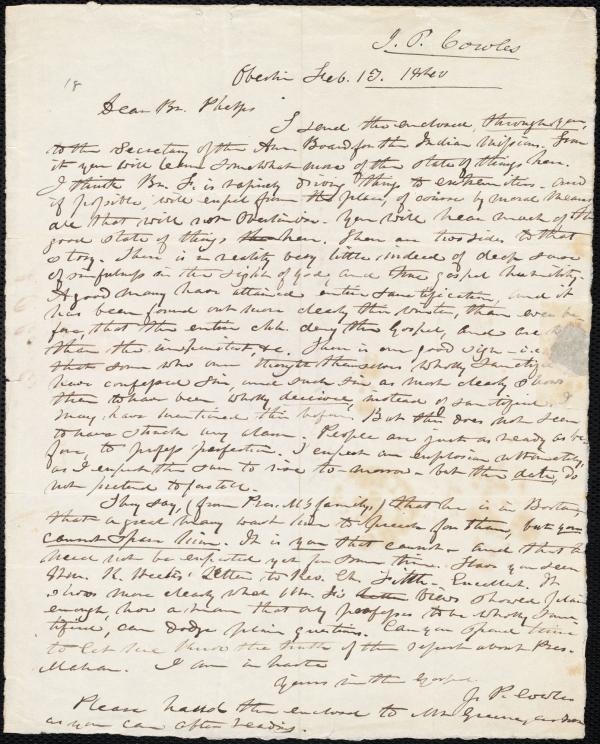 J. P. Cowles
18
Oberlin Feb. 15. 1840
Dear Br. Phelps
I send the enclosed, through you,
to the Secretary of the Am Board for the Indian Mission. From
it you will learn somewhat more of the state of things here.
I think Br. F. is rapidly driving things to extremities. and
if possible, will expel from the place, of course by moral means
all that will not Oberlinize. You will hear much of the
good state of things here. There are two sides to that
story. There is in reality very little, indeed of deep sense
of sinfulness in the sight of God, and true gospel humility.
A good many have attained entire sanctification, and it
has been found out more clearly this winter, than ever be
fore, that the entire chh. deny the Gospel, and are
than the impenitent &c. There is one good sign - i.e.
that some who once thought themselves wholly sanctified
have confessed sin, and such sin as most clearly shows
them to have been wholly deceived, instead of sanctified. I
may have mentioned this before. But this does not seem
to have struck any alarm. People are just as ready as be
fore, to profess perfection. I expect an explosion ultimately,
as I expect the sun to rise to-morrow - but the date, do
not pretend to foretell.
They say, (from Pres. M's family,) that he is in Boston,
that a great many want him to preach for them, but you
cannot spare him. It is you that cannot - and that he
need not be expected yet for some time. Have you seen
Hon. R. Weeks' Letter to Rev. Ch. Fitch - Excellent. It
shows more clearly what Mr. F's views showed plain
enough, how a man that only professes to be wholly sanc
tified, can dodge plain questions. Can you spend time
to let me know the truth of the report about Pres.
Mahan. I am in haste
Yours in the Gospel.
J. P. Cowles
Please hand the enclosed to Mr Greene, as soon
as you can after reading.